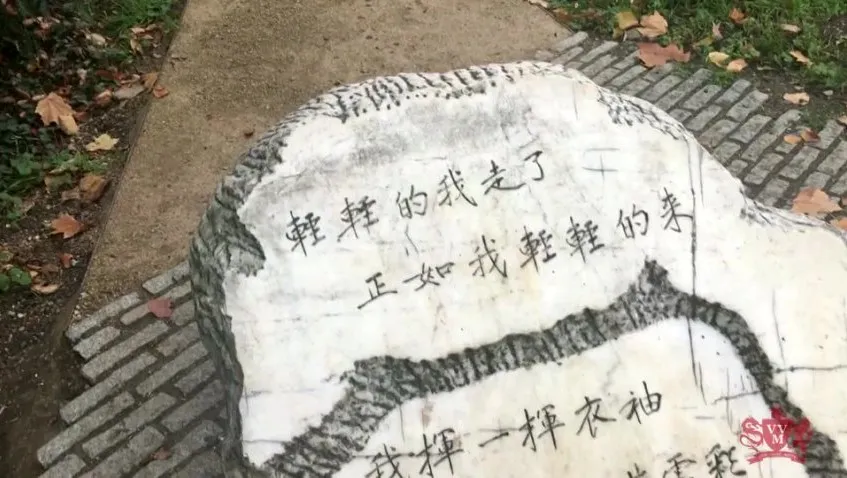 輕輕的我走了
正如我輕輕的来
我揮一揮衣袖
雲彩
SVVM